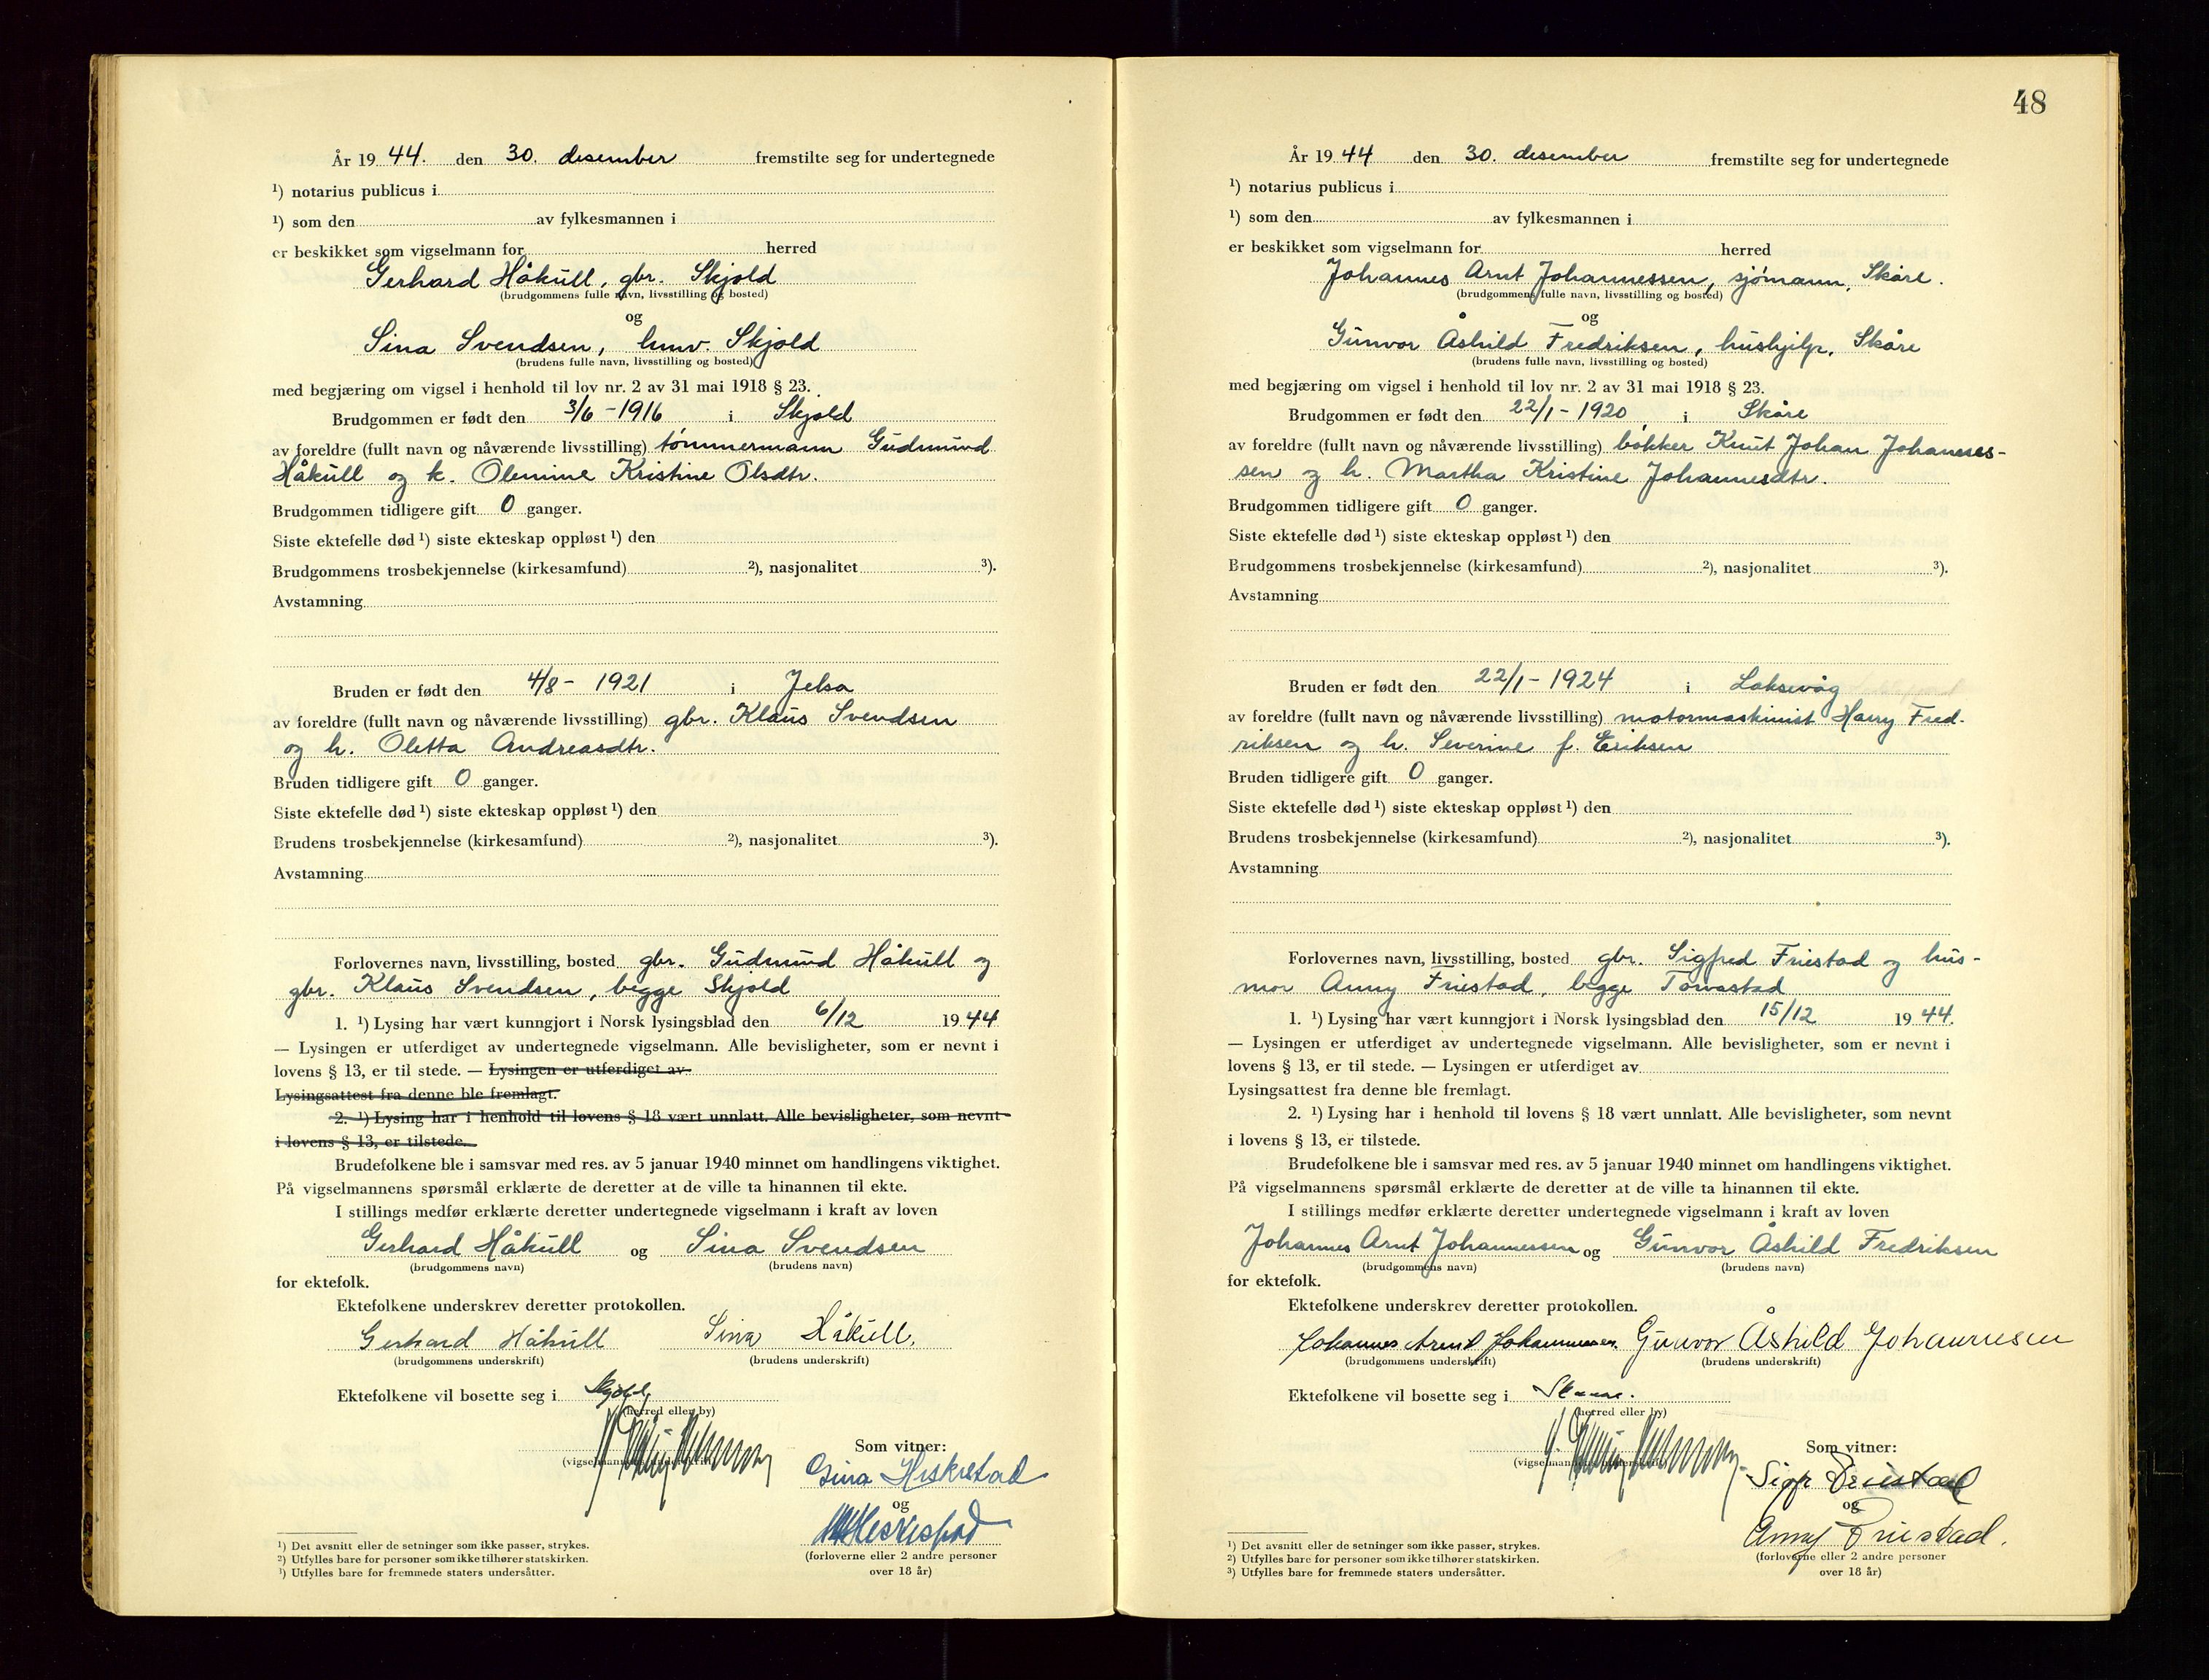 År 19 44. den 30. desember fremstilte seg for undertegnede
¹) notarius publicus i
¹) som den av fylkesmannen i
er beskikket som vigselmann for herred
Gerhard Håkull, gbr. Skjold
(brudgommens fulle navn, livsstilling og bosted)
og
Sina Svendsen, hmv. Skjold
(brudens fulle navn, livsstilling og bosted)
med begjæring om vigsel i henhold til lov nr. 2 av 31 mai 1918 § 23.
Brudgommen er født den 3/6 - 1916 i Skjold
av foreldre (fullt navn og nåværende livsstilling) tømmermann Gudmund
Håkull og k. Olemine Kristine Olsdtr.
Brudgommen tidligere gift 0 ganger.
Siste ektefelle død ¹) siste ekteskap oppløst ¹) den
Brudgommens trosbekjennelse (kirkesamfund) ²), nasjonalitet ³).
Avstamning
Bruden er født den 4/8 - 1921 i Jelsa
av foreldre (fullt navn og nåværende livsstilling) gbr. Klaus Svendsen
og h. Oletta Andreasdtr.
Bruden tidligere gift 0 ganger.
Siste ektefelle død ¹) siste ekteskap oppløst ¹) den
Brudens trosbekjennelse (kirkesamfund) ²), nasjonalitet ³).
Avstamning
Forlovernes navn, livsstilling, bosted gbr. Gudmund Håkull og
gbr. Klaus Svendsen, begge Skjold
1. ¹) Lysing har vært kunngjort i Norsk lysingsblad den 6/12 19 44
— Lysingen er utferdiget av undertegnede vigselmann. Alle bevisligheter, som er nevnt i
lovens § 13, er til stede. — Lysingen er utferdiget av
Lysingsattest fra denne ble fremlagt.
2. ¹) Lysing har i henhold til lovens § 18 vært unnlatt. Alle bevisligheter, som nevnt
i lovens § 13, er tilstede.
Brudefolkene ble i samsvar med res. av 5 januar 1940 minnet om handlingens viktighet.
På vigselmannens spørsmål erklærte de deretter at de ville ta hinannen til ekte.
I stillings medfør erklærte deretter undertegnede vigselmann i kraft av loven
Gerhard Håkull og Sina Svendsen
(brudgommens navn) (brudens navn)
for ektefolk.
Ektefolkene underskrev deretter protokollen.
Gerhard Håkull Sina Håkull.
(brudgommens underskrift) (brudens underskrift)
Ektefolkene vil bosette seg i Skjold
(herred eller by)
Som vitner:
(vigselmannens underskrift)
og
(forloverne eller 2 andre personer
over 18 år)
¹) Det avsnitt eller de setninger som ikke passer, strykes.
²) Utfylles bare for personer som ikke tilhører statskirken.
¹) Utfylles bare for fremmede staters undersåtter.
48
År 19 44 den 30. desember fremstilte seg for undertegnede
¹) notarius publicus i
¹) som den av fylkesmannen i
er beskikket som vigselmann for herred
Johannes Arnt Johannessen, sjømann, Skåre.
(brudgommens fulle navn, livsstilling og bosted)
og
Gunvor Åshild Fredriksen, hushjelp, Skåre
(brudens fulle navn, livsstilling og bosted)
med begjæring om vigsel i henhold til lov nr. 2 av 31 mai 1918 § 23.
Brudgommen er født den 22/1 - 1920 i Skåre
av foreldre (fullt navn og nåværende livsstilling) bøkker Knut Johan Johannes-
sen og h. Martha Kristine Johannesdtr.
Brudgommen tidligere gift 0 ganger.
Siste ektefelle død ¹) siste ekteskap oppløst ¹) den
Brudgommens trosbekjennelse (kirkesamfund) ²), nasjonalitet ³).
Avstamning
Bruden er født den 22/1 - 1924 i Laksevåg
av foreldre (fullt navn og nåværende livsstilling) motormaskinist Harry Fred-
riksen og h. Severine f. Eriksen
Bruden tidligere gift 0 ganger.
Siste ektefelle død ¹) siste ekteskap oppløst ¹) den
Brudens trosbekjennelse (kirkesamfund) ²), nasjonalitet ³).
Avstamning
Forlovernes navn, livsstilling, bosted gbr. Sigfred Friestad og hus-
mor Anny Friestad, begge Torvastad
1. ¹) Lysing har vært kunngjort i Norsk lysingsblad den 15/12 19 44.
— Lysingen er utferdiget av undertegnede vigselmann. Alle bevisligheter, som er nevnt i
lovens § 13, er til stede. — Lysingen er utferdiget av
Lysingsattest fra denne ble fremlagt.
2. ¹) Lysing har i henhold til lovens § 18 vært unnlatt. Alle bevisligheter, som nevnt
i lovens § 13, er tilstede.
Brudefolkene ble i samsvar med res. av 5 januar 1940 minnet om handlingens viktighet.
På vigselmannens spørsmål erklærte de deretter at de ville ta hinannen til ekte.
I stillings medfør erklærte deretter undertegnede vigselmann i kraft av loven
Johannes Arnt Johannessen og Gunvor Åshild Fredriksen
(brudgommens navn) (brudens navn)
for ektefolk.
Ektefolkene underskrev deretter protokollen.
Johannes Arent Johannessen. Gunvor Åshild Johannesen
(brudgommens underskrift) (brudens underskrift)
Ektefolkene vil bosette seg i Skaare.
(herred eller by)
Som vitner:
(vigselmannens underskrift)
Sigfr Friestad
og
Anny Friestad.
(forloverne eller 2 andre personer
over 18 år)
¹) Det avsnitt eller de setninger som ikke passer, strykes.
²) Utfylles bare for personer som ikke tilhører statskirken.
³) Utfylles bare for fremmede staters undersåtter.